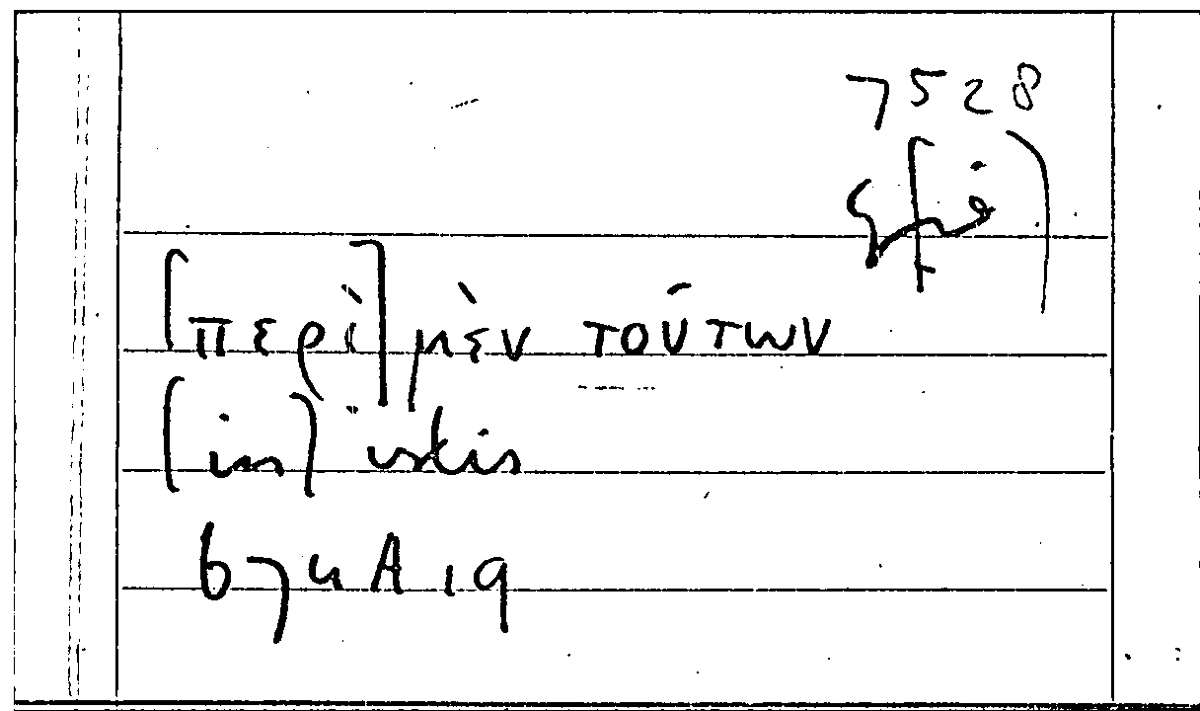 7528
[περὶ] μὲν τούτων
[in] istis
674A19